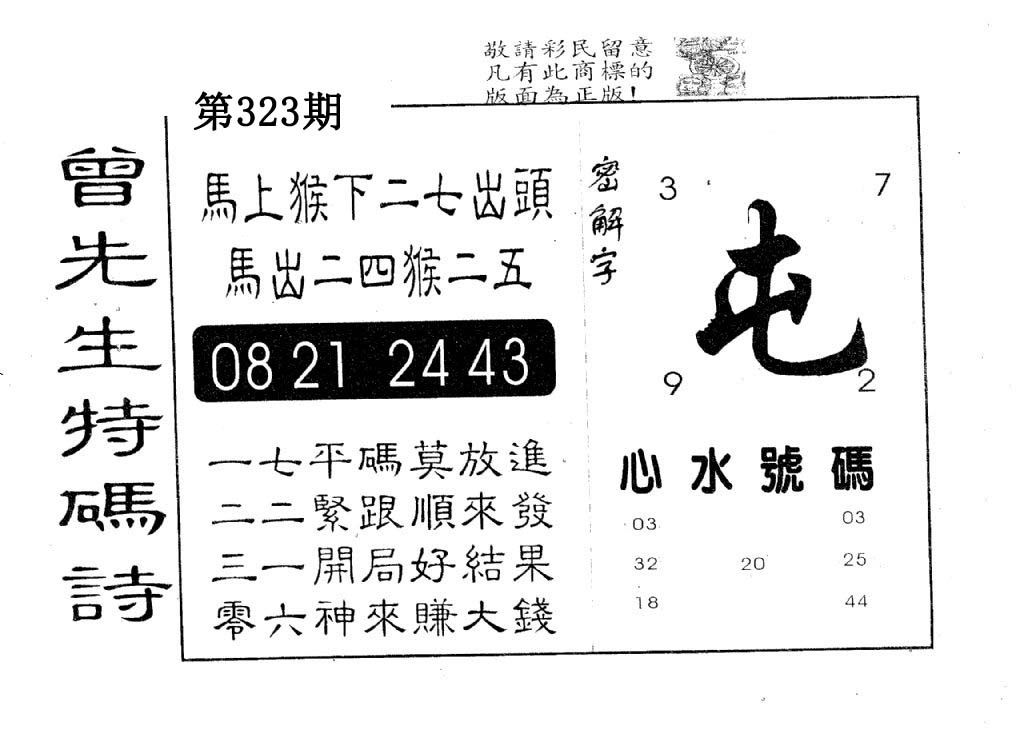 敬請彩民留意
凡有此商標的
版面為正版!
第323期
曾先生特碼詩
馬上猴下二七出頭
馬出二四猴二五
08 21 24 43
一七平碼莫放進
二二緊跟順來發
三一開局好結果
零六神來賺大錢
密解字
3 7
屯
9 2
心水號碼
03 03
32 20 25
18 44